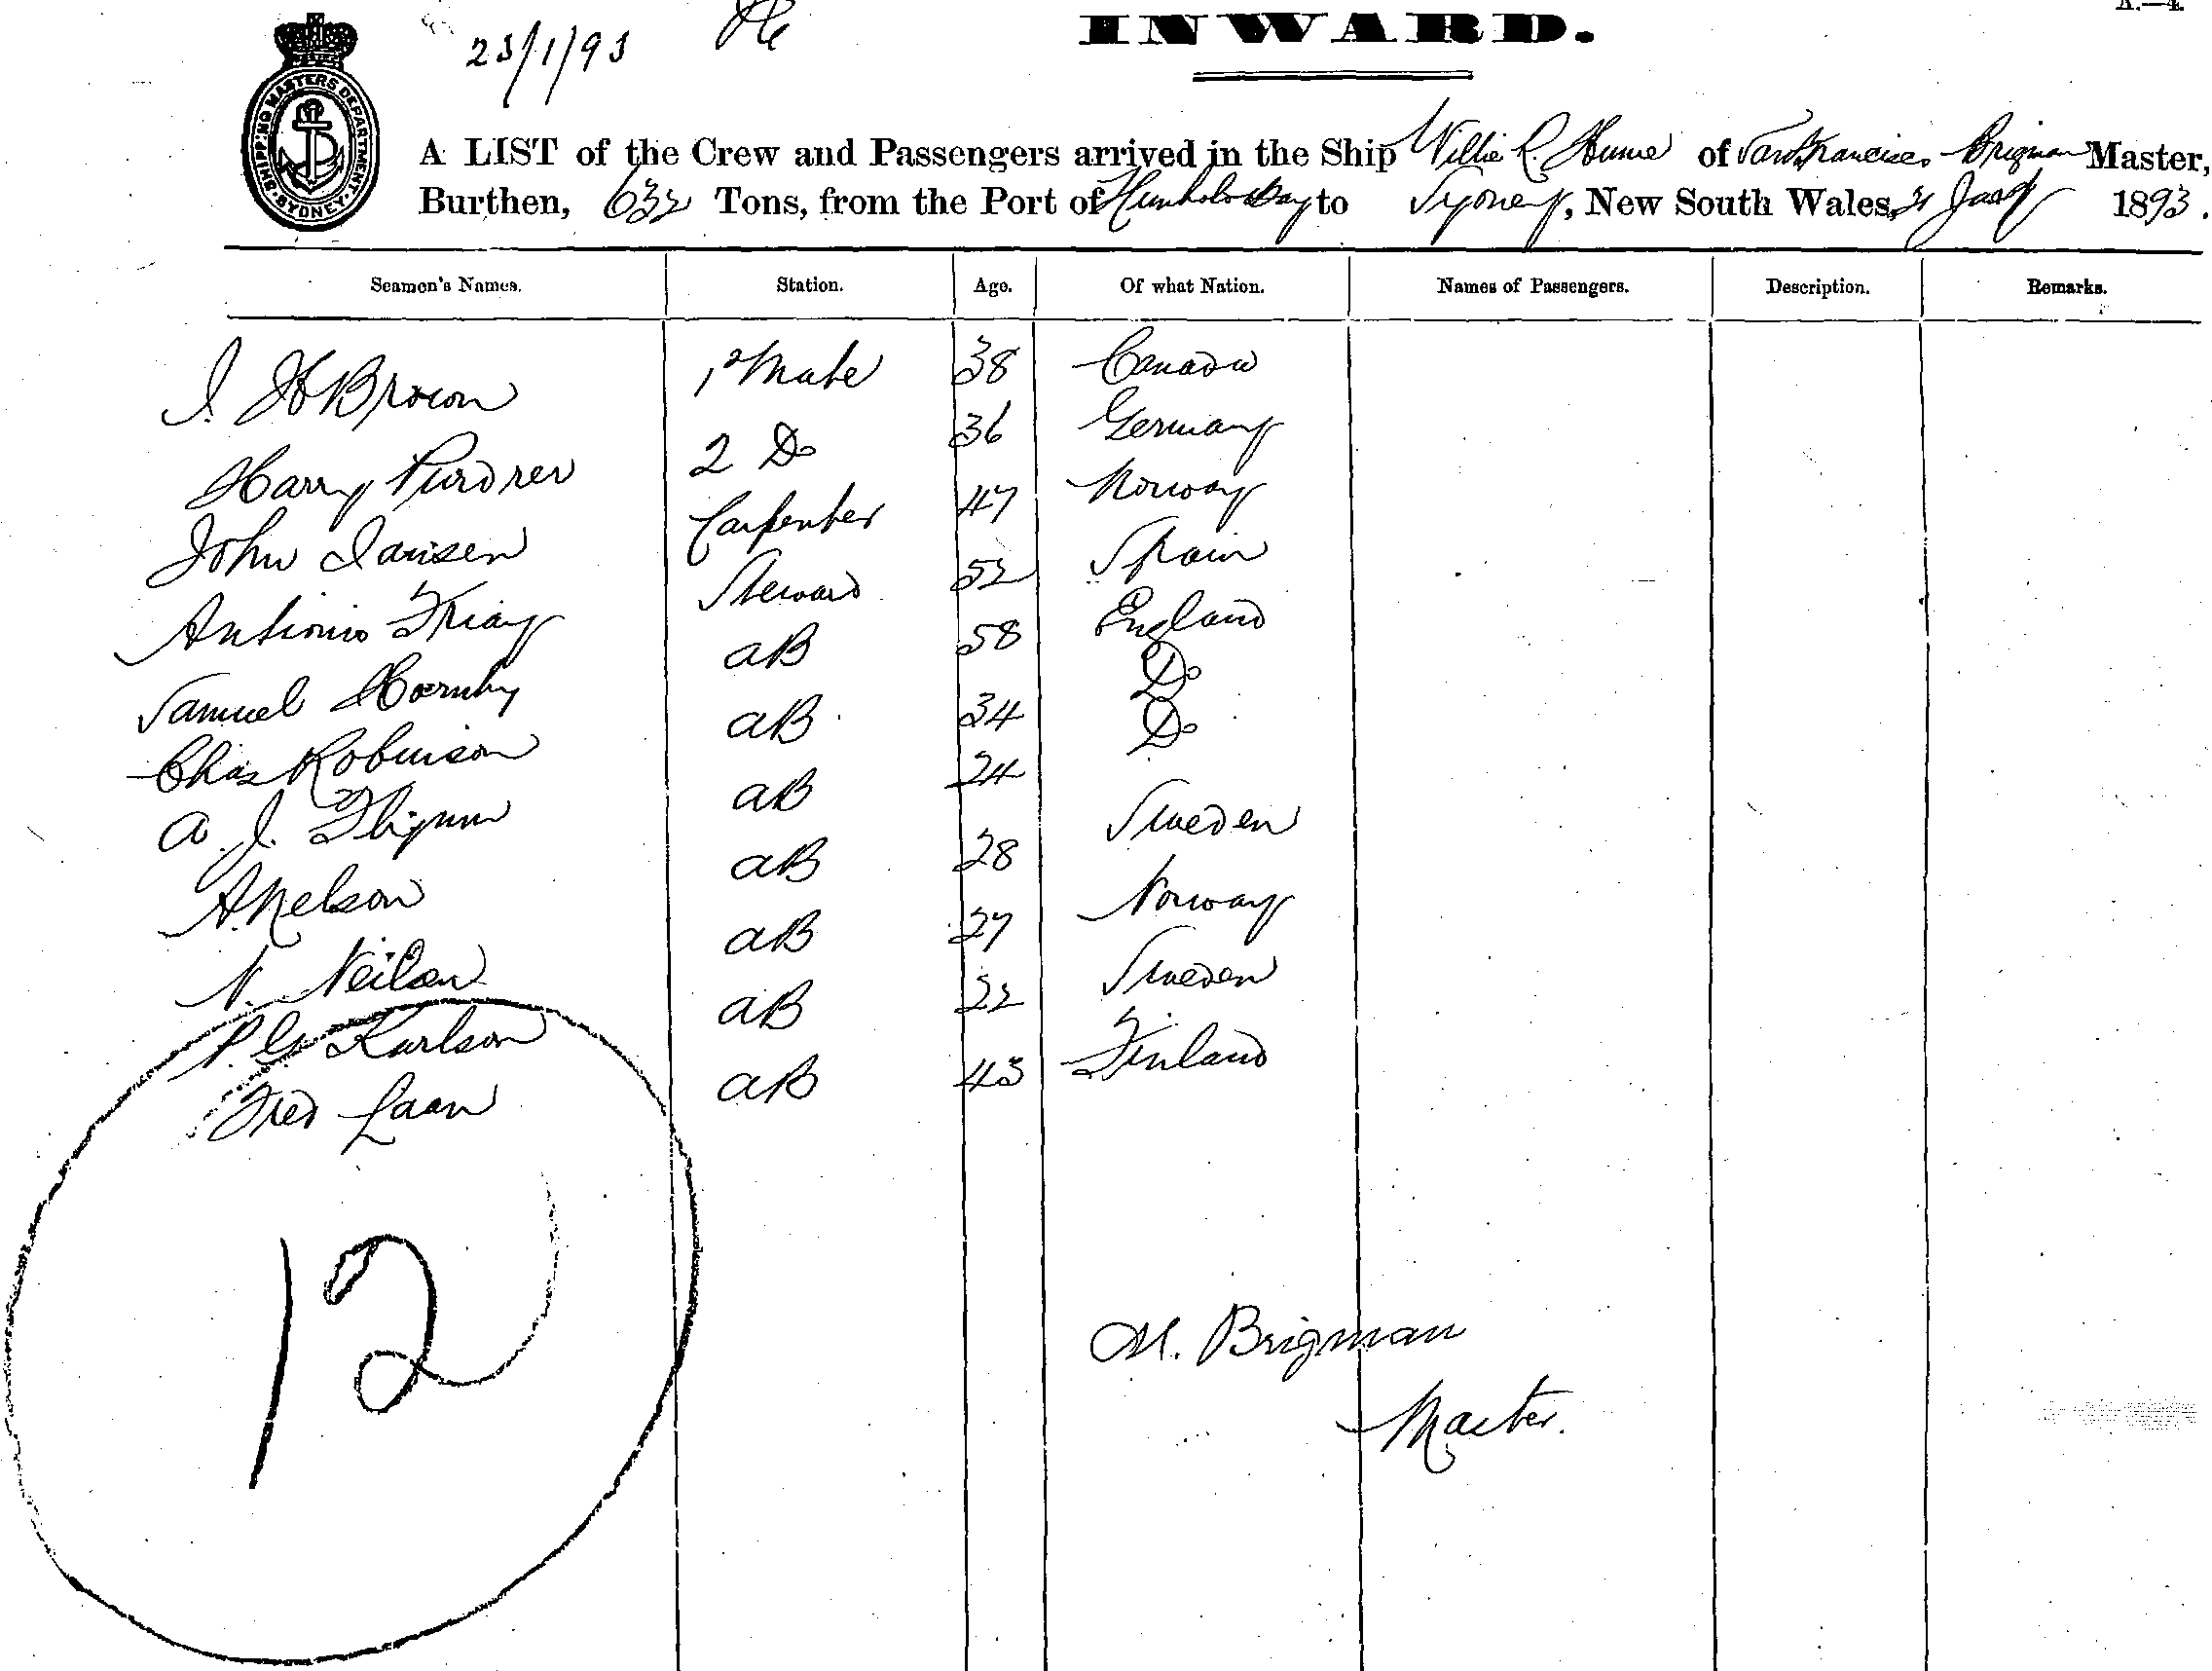 A.—4.
23/1/93
INWARD.
SHIPPING MASTERS DEPARTMENT · SYDNEY ·
A LIST of the Crew and Passengers arrived in the Ship Willie R. Hume of San Francisco Brigman Master,
Burthen, 632 Tons, from the Port of Humboldt Bay to Sydney, New South Wales, 21 Jany 1893.
Seamen's Names. Station. Age. Of what Nation. Names of Passengers. Description. Remarks.
Brown 1 Mate 38 Canada
Harry 2 Do 36 Germany
John Jansen Carpenter 47 Norway
Antonio Steward 52 Spain
Samuel Hornby AB 58 England
Chas Robinson AB 34 Do
A. J. AB 24 Do
A. Nelson AB 28 Sweden
N. Neilson AB 27 Norway
P. G. Karlson AB 22 Sweden
Fred Laan AB 43 Finland
12
M. Brigman
Master.